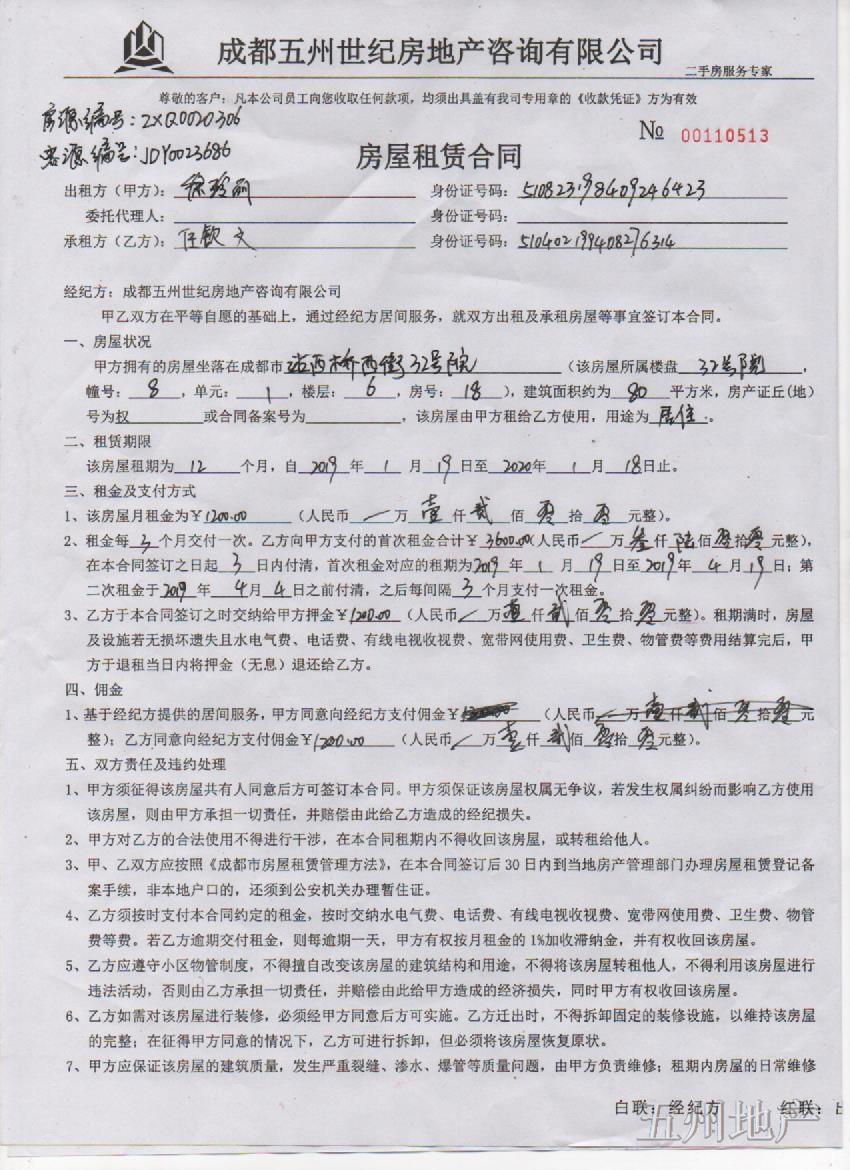 成都五州世纪房地产咨询有限公司
二手房服务专家
尊敬的客户：凡本公司员工向您收取任何款项，均须出具盖有我司专用章的《收款凭证》方为有效
房源编号：ZXQ0020306
客源编号：JDY0023686
№ 00110513
房屋租赁合同
出租方（甲方）： 身份证号码：510823198409246423
委托代理人： 身份证号码：
承租方（乙方）：任钦文 身份证号码：510402199408276314
经纪方：成都五州世纪房地产咨询有限公司
甲乙双方在平等自愿的基础上，通过经纪方居间服务，就双方出租及承租房屋等事宜签订本合同。
一、房屋状况
甲方拥有的房屋坐落在成都市站西桥西街32号院（该房屋所属楼盘 32号院，
幢号：8，单元：1，楼层：6，房号：18），建筑面积约为 80 平方米，房产证丘(地)
号为权 或合同备案号为 ，该房屋由甲方租给乙方使用，用途为 居住。
二、租赁期限
该房屋租期为 12 个月，自 2019 年 1 月 19 日至 2020年 1 月 18日止。
三、租金及支付方式
1、该房屋月租金为￥1200.00（人民币 / 万 壹 仟 贰 佰 零 拾 零 元整）。
2、租金每 3 个月交付一次。乙方向甲方支付的首次租金合计￥3600.00(人民币 / 万 叁 仟 陆 佰 零 拾 零 元整)，
在本合同签订之日起 3 日内付清，首次租金对应的租期为2019 年 1 月 19 日至 2019 年 4 月 19 日；第
二次租金于2019 年 4月 4 日之前付清，之后每间隔 3 个月支付一次租金。
3、乙方于本合同签订之时交纳给甲方押金￥1200.00（人民币 / 万 壹 仟 贰 佰 零 拾 零 元整）。租期满时，房屋
及设施若无损坏遗失且水电气费、电话费、有线电视收视费、宽带网使用费、卫生费、物管费等费用结算完后，甲
方于退租当日内将押金（无息）退还给乙方。
四、佣金
1、基于经纪方提供的居间服务，甲方同意向经纪方支付佣金￥1200.00（人民币 / 万 壹 仟 贰 佰 零 拾 零 元
整）；乙方同意向经纪方支付佣金￥1200.00（人民币 / 万 壹 仟 贰 佰 零 拾 零 元整）。
五、双方责任及违约处理
1、甲方须征得该房屋共有人同意后方可签订本合同。甲方须保证该房屋权属无争议，若发生权属纠纷而影响乙方使用
该房屋，则由甲方承担一切责任，并赔偿由此给乙方造成的经纪损失。
2、甲方对乙方的合法使用不得进行干涉，在本合同租期内不得收回该房屋，或转租给他人。
3、甲、乙双方应按照《成都市房屋租赁管理方法》，在本合同签订后 30 日内到当地房产管理部门办理房屋租赁登记备
案手续，非本地户口的，还须到公安机关办理暂住证。
4、乙方须按时支付本合同约定的租金，按时交纳水电气费、电话费、有线电视收视费、宽带网使用费、卫生费、物管
费等费。若乙方逾期交付租金，则每逾期一天，甲方有权按月租金的 1%加收滞纳金，并有权收回该房屋。
5、乙方应遵守小区物管制度，不得擅自改变该房屋的建筑结构和用途，不得将该房屋转租他人，不得利用该房屋进行
违法活动，否则由乙方承担一切责任，并赔偿由此给甲方造成的经济损失，同时甲方有权收回该房屋。
6、乙方如需对该房屋进行装修，必须经甲方同意后方可实施。乙方迁出时，不得拆卸固定的装修设施，以维持该房屋
的完整；在征得甲方同意的情况下，乙方可进行拆卸，但必须将该房屋恢复原状。
7、甲方应保证该房屋的建筑质量，发生严重裂缝、渗水、爆管等质量问题，由甲方负责维修；租期内房屋的日常维修
白联：经纪方 红联：出
五州地产